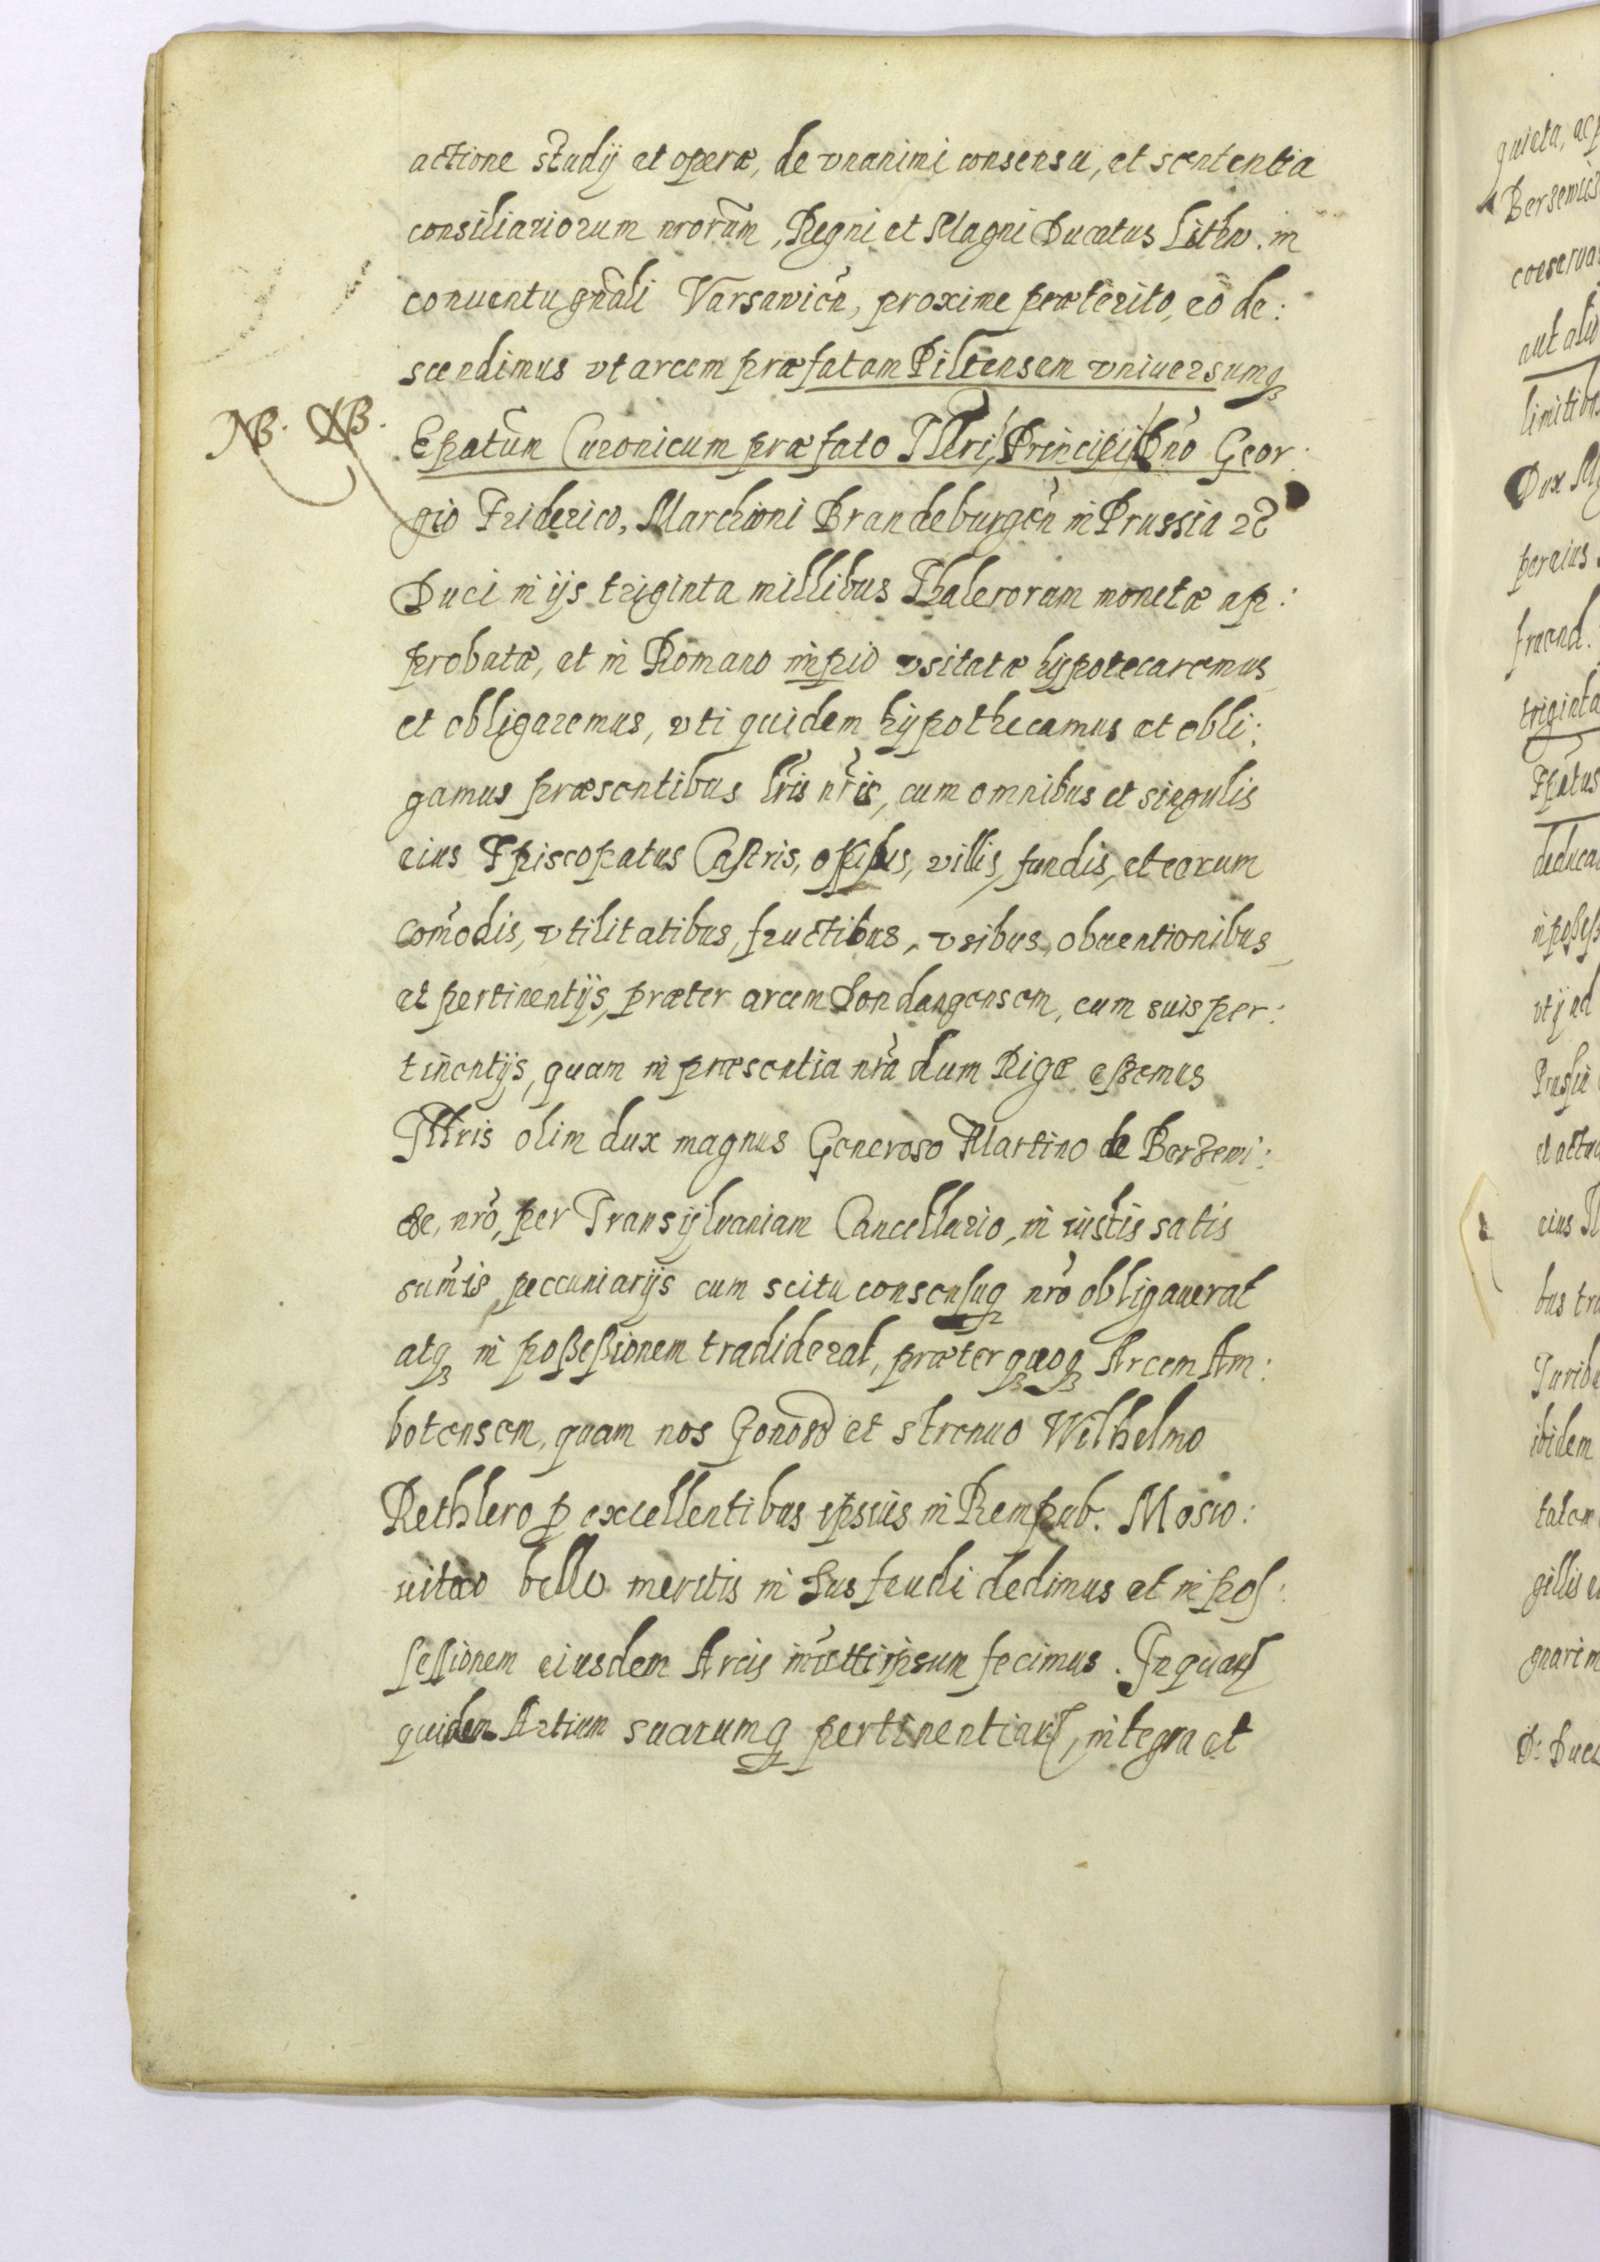 actione studij et operæ, de vnanimi consensu, et sententia
consiliariorum nrorum, Regni et Magni Ducatus Lithv. in
conuentu gnali Varsauien, proxime præterito, eo de:
scendimus vt arcem præfatam Piltensem vniuersumq
NB. NB.
Epatum Curonicum præfato Illri Principi Dno Geor
gio Friderico, Marchioni Brandeburgen in Prussia
Duci in ijs triginta millibus Thalerorum monetæ ap:
probatæ, et in Romano impio vsitatæ hypotecaremus
et obligaremus, vti quidem hypothecamus et obli:
gamus præsentibus lris nris, cum omnibus et singulis
eius Episcopatus Castris, villis, fundis, et eorum
comodis, vtilitatibus, fructibus, vsibus, obuentionibus
et pertinentijs, præter arcem Dondangensem, cum suis per:
tinentijs, quam in præsentia nra dum Rigæ essemus
Illris olim dux magnus Generoso Martino de Berzewi:
cze, nro, per Transyluaniam Cancellario, in iustis satis
sumis peccuniarijs cum scitu consensuq nro obligauerat
atq in poßeßionem tradiderat, præter quoq Arcem Am:
botensem, quam nos Genoso et strenuo Wilhelmo
Rethlero p excellentibus ipsius in Rempub. Mosco:
uitico bello meritis in Jus feudi dedimus et in pos:
sessionem eiusdem Arcis imitti ipsum fecimus. In quar
quidem Artium suarumq pertinentiar, integra et